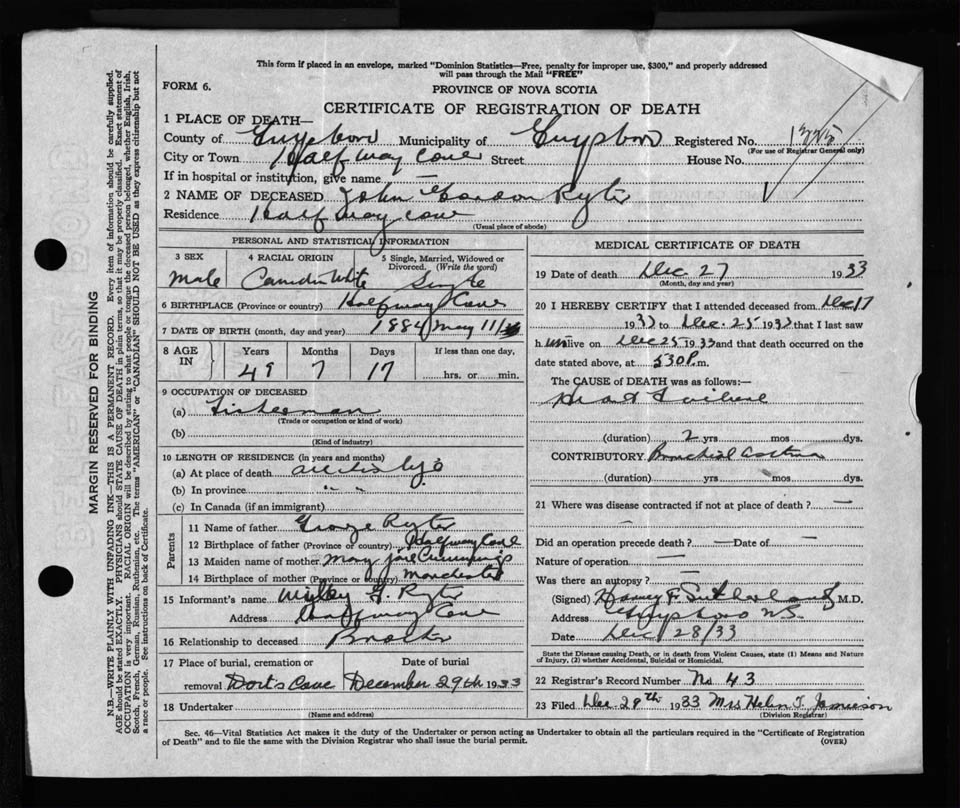 This form if placed in an envelope, marked "Dominion Statistics—Free, penalty for improper use, $300," and properly addressed
will pass through the Mail "FREE"
FORM 6.
PROVINCE OF NOVA SCOTIA
CERTIFICATE OF REGISTRATION OF DEATH
1 PLACE OF DEATH—
County of Guysboro Municipality of Guysboro Registered No. 1325
(For use of Registrar General only)
City or Town Half way Cove Street House No.
If in hospital or institution, give name —
2 NAME OF DECEASED John Gordon Ryter
Residence Half Way Cove
(Usual place of abode)
PERSONAL AND STATISTICAL INFORMATION
3 SEX 4 RACIAL ORIGIN 5 Single, Married, Widowed or Divorced. (Write the word)
Male White Single
6 BIRTHPLACE (Province or country) Halfway Cove
7 DATE OF BIRTH (month, day and year) 1984 May 11
8 AGE IN Years Months Days If less than one day,
49 7 17 hrs. or min.
9 OCCUPATION OF DECEASED
(a) Fisherman
(Trade or occupation or kind of work)
(b)
(Kind of industry)
10 LENGTH OF RESIDENCE (in years and months)
(a) At place of death all his life
(b) In province " "
(c) In Canada (if an immigrant)
Parents
11 Name of father George Ryter
12 Birthplace of father (Province or country) Halfway Cove
13 Maiden name of mother Mary Jane Cummings
14 Birthplace of mother (Province or country) Manchester
15 Informant's name Ryter
Address Halfway Cove
16 Relationship to deceased Brother
17 Place of burial, cremation or removal Dorts Cove Date of burial December 29th 1933
18 Undertaker
(Name and address)
MEDICAL CERTIFICATE OF DEATH
19 Date of death Dec 27 1933
(Month, day and year)
20 I HEREBY CERTIFY that I attended deceased from Dec 17
1933 to Dec. 25 1933 that I last saw
h im alive on Dec 25 1933 and that death occurred on the
date stated above, at 530 P.m.
The CAUSE OF DEATH was as follows:—
Heart Failure
(duration) 2 yrs mos dys.
CONTRIBUTORY Bronchial Asthma
(duration) yrs mos dys.
21 Where was disease contracted if not at place of death? —
Did an operation precede death? — Date of —
Nature of operation —
Was there an autopsy? —
(Signed) Harvey F. Sutherland M.D.
Address Guysboro N.S.
Date Dec 28/33
State the Disease causing Death, or in death from Violent Causes, state (1) Means and Nature
of Injury, (2) whether Accidental, Suicidal or Homicidal.
22 Registrar's Record Number No 43
23 Filed Dec 29th 1933 Mrs Helen T. Jamieson
(Division Registrar)
Sec. 46—Vital Statistics Act makes it the duty of the Undertaker or person acting as Undertaker to obtain all the particulars required in the "Certificate of Registration
of Death" and to file the same with the Division Registrar who shall issue the burial permit.
(OVER)
MARGIN RESERVED FOR BINDING
N.B.—WRITE PLAINLY WITH UNFADING INK—THIS IS A PERMANENT RECORD. Every item of information should be carefully supplied.
AGE should be stated EXACTLY. PHYSICIANS should STATE CAUSE OF DEATH in plain terms, so that it may be properly classified. Exact statement of
OCCUPATION is very important. RACIAL ORIGIN will be described by stating to what people or tongue the deceased person belonged, whether English, Irish,
Scotch, French, German, Russian, Ruthenian, etc. The terms "AMERICAN" or "CANADIAN" SHOULD NOT BE USED as they express citizenship but not
a race or people. See instructions on back of Certificate.